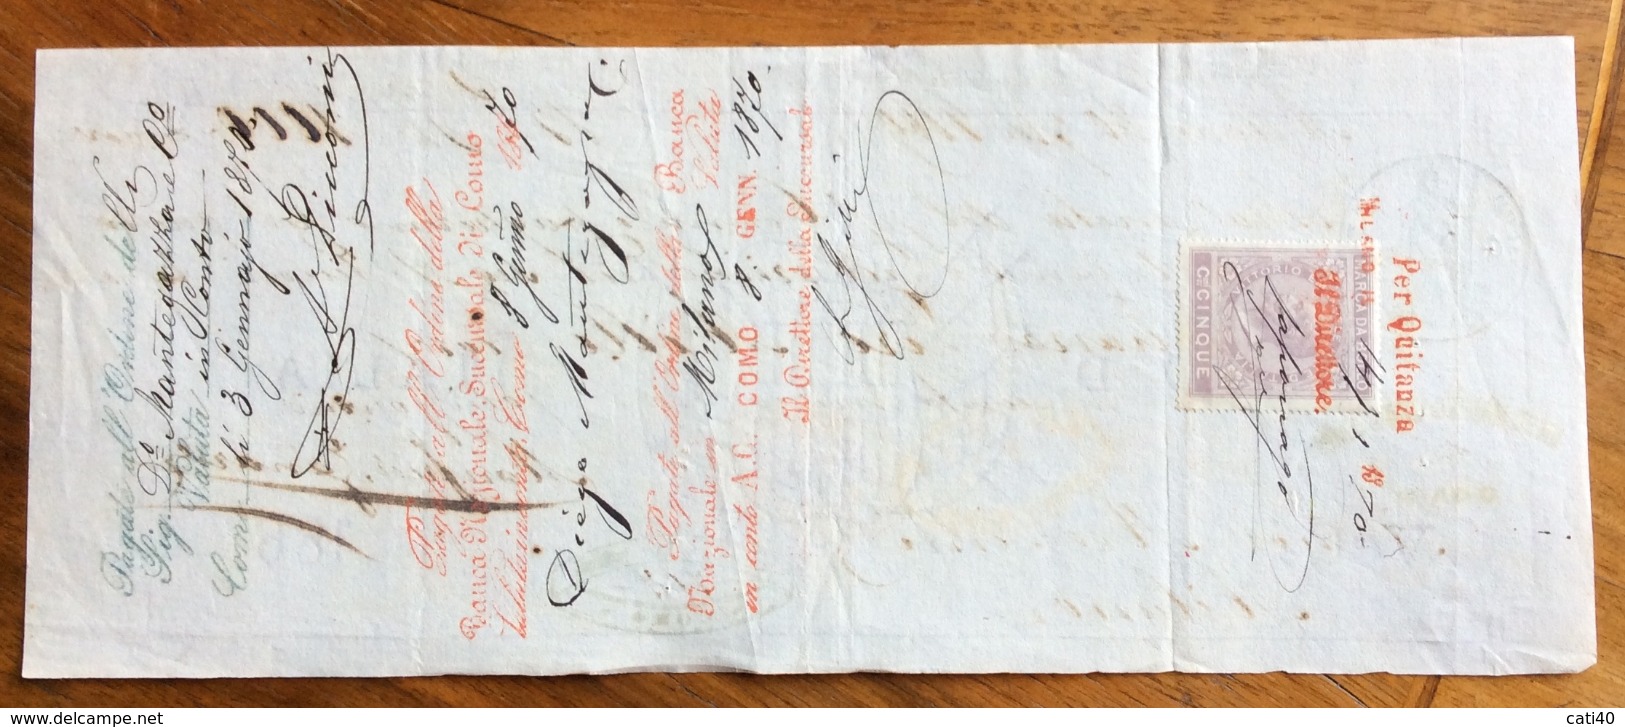 Pagate all'Ordine delli
Sig. D.º Mantegazza e C.º
Valuta in Conto
Como li 3 Gennajo 1870
Pagate all'Ordine della
Banca Nazionale Succursale di Como
Valuta in conto, Como 8 Genn.º 1870
Diego Mantegazza
Pagate all'Ordine della Banca
Nazionale in Milano Valuta
in conto A.C. COMO 8 GENN. 1870.
Il Direttore della Succursale
Per Quitanza
MILANO li 1870
Il Direttore
MARCA DA BOLLO
C.mi CINQUE
cati40
www.delcampe.net